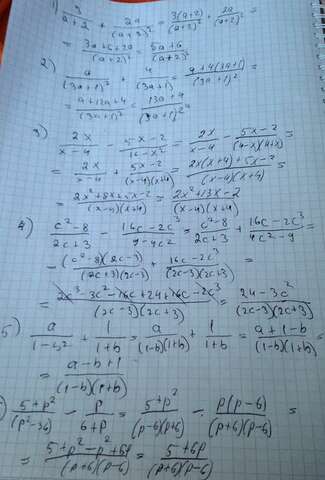 1) 3/(a+2) + 2a/(a+2)² = 3(a+2)/(a+2)² + 2a/(a+2)² =
= (3a+6+2a)/(a+2)² = (5a+6)/(a+2)²
2) a/(3a+1)² + 4/(3a+1) = (a+4(3a+1))/(3a+1)² =
= (a+12a+4)/(3a+1)² = (13a+4)/(3a+1)²
3) 2x/(x-4) - (5x-2)/(16-x²) = 2x/(x-4) - (5x-2)/((4-x)(4+x)) =
= 2x/(x-4) + (5x-2)/((x-4)(x+4)) = (2x(x+4)+5x-2)/((x-4)(x+4)) =
= (2x²+8x+5x-2)/((x-4)(x+4)) = (2x²+13x-2)/((x-4)(x+4))
4) (c²-8)/(2c+3) - (16c-2c³)/(9-4c²) = (c²-8)/(2c+3) + (16c-2c³)/(4c²-9) =
= (c²-8)(2c-3)/((2c+3)(2c-3)) + (16c-2c³)/((2c-3)(2c+3) =
= (2c³-3c²-16c+24+16c-2c³)/((2c-3)(2c+3)) = (24-3c²)/((2c-3)(2c+3))
5) a/(1-b²) + 1/(1+b) = a/((1-b)(1+b)) + 1/(1+b) = (a+1-b)/((1-b)(1+b)) =
= (a-b+1)/((1-b)(1+b))
(5+p²)/(p²-36) - p/(6+p) = (5+p²)/((p-6)(p+6)) - p(p-6)/((p+6)(p-6)) =
= (5+p²-p²+6p)/((p+6)(p-6)) = (5+6p)/((p+6)(p-6))